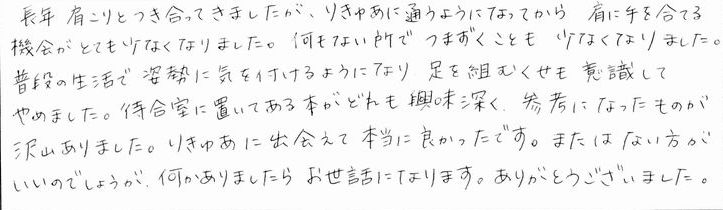 長年 肩こりとつき合ってきましたが、りきゅあに通うようになってから 肩に手を当てる
機会がとても少なくなりました。何もない所で つまずくことも 少なくなりました。
普段の生活で 姿勢に気を付けるようになり 足を組むくせも 意識して
やめました。待合室に置いてある本がどれも興味深く、参考になったものが
沢山ありました。りきゅあに出会えて本当に良かったです。またはない方が
いいのでしょうが、何かありましたら お世話になります。ありがとうございました。